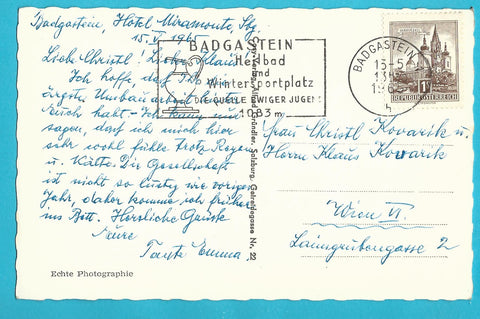 Badgastein, Hotel Miramonte, Sbg
15. V. 1965
Liebe Christl! Lieber Klaus!
Ich hoffe daß Ihr die
ärgsten Umbauarbeiten hinter
Euch habt. – Ich kann nur
sagen, daß ich mich hier
sehr wohl fühle trotz Regen
u. Kälte. Die Gesellschaft
ist nicht so lustig wie voriges
Jahr, daher komme ich früher
ins Bett. Herzliche Grüße
Eure
Tante Emma
Echte Photographie
BADGASTEIN
Heilbad
und
Wintersportplatz
DIE QUELLE EWIGER JUGEND
1083 m
Salzburg, Getreidegasse Nr. 22
BADGASTEIN
1965
REPUBLIK ÖSTERREICH
Frau Christl Kovarik u.
Herrn Klaus Kovarik
Wien VI
Laimgrubengasse 2